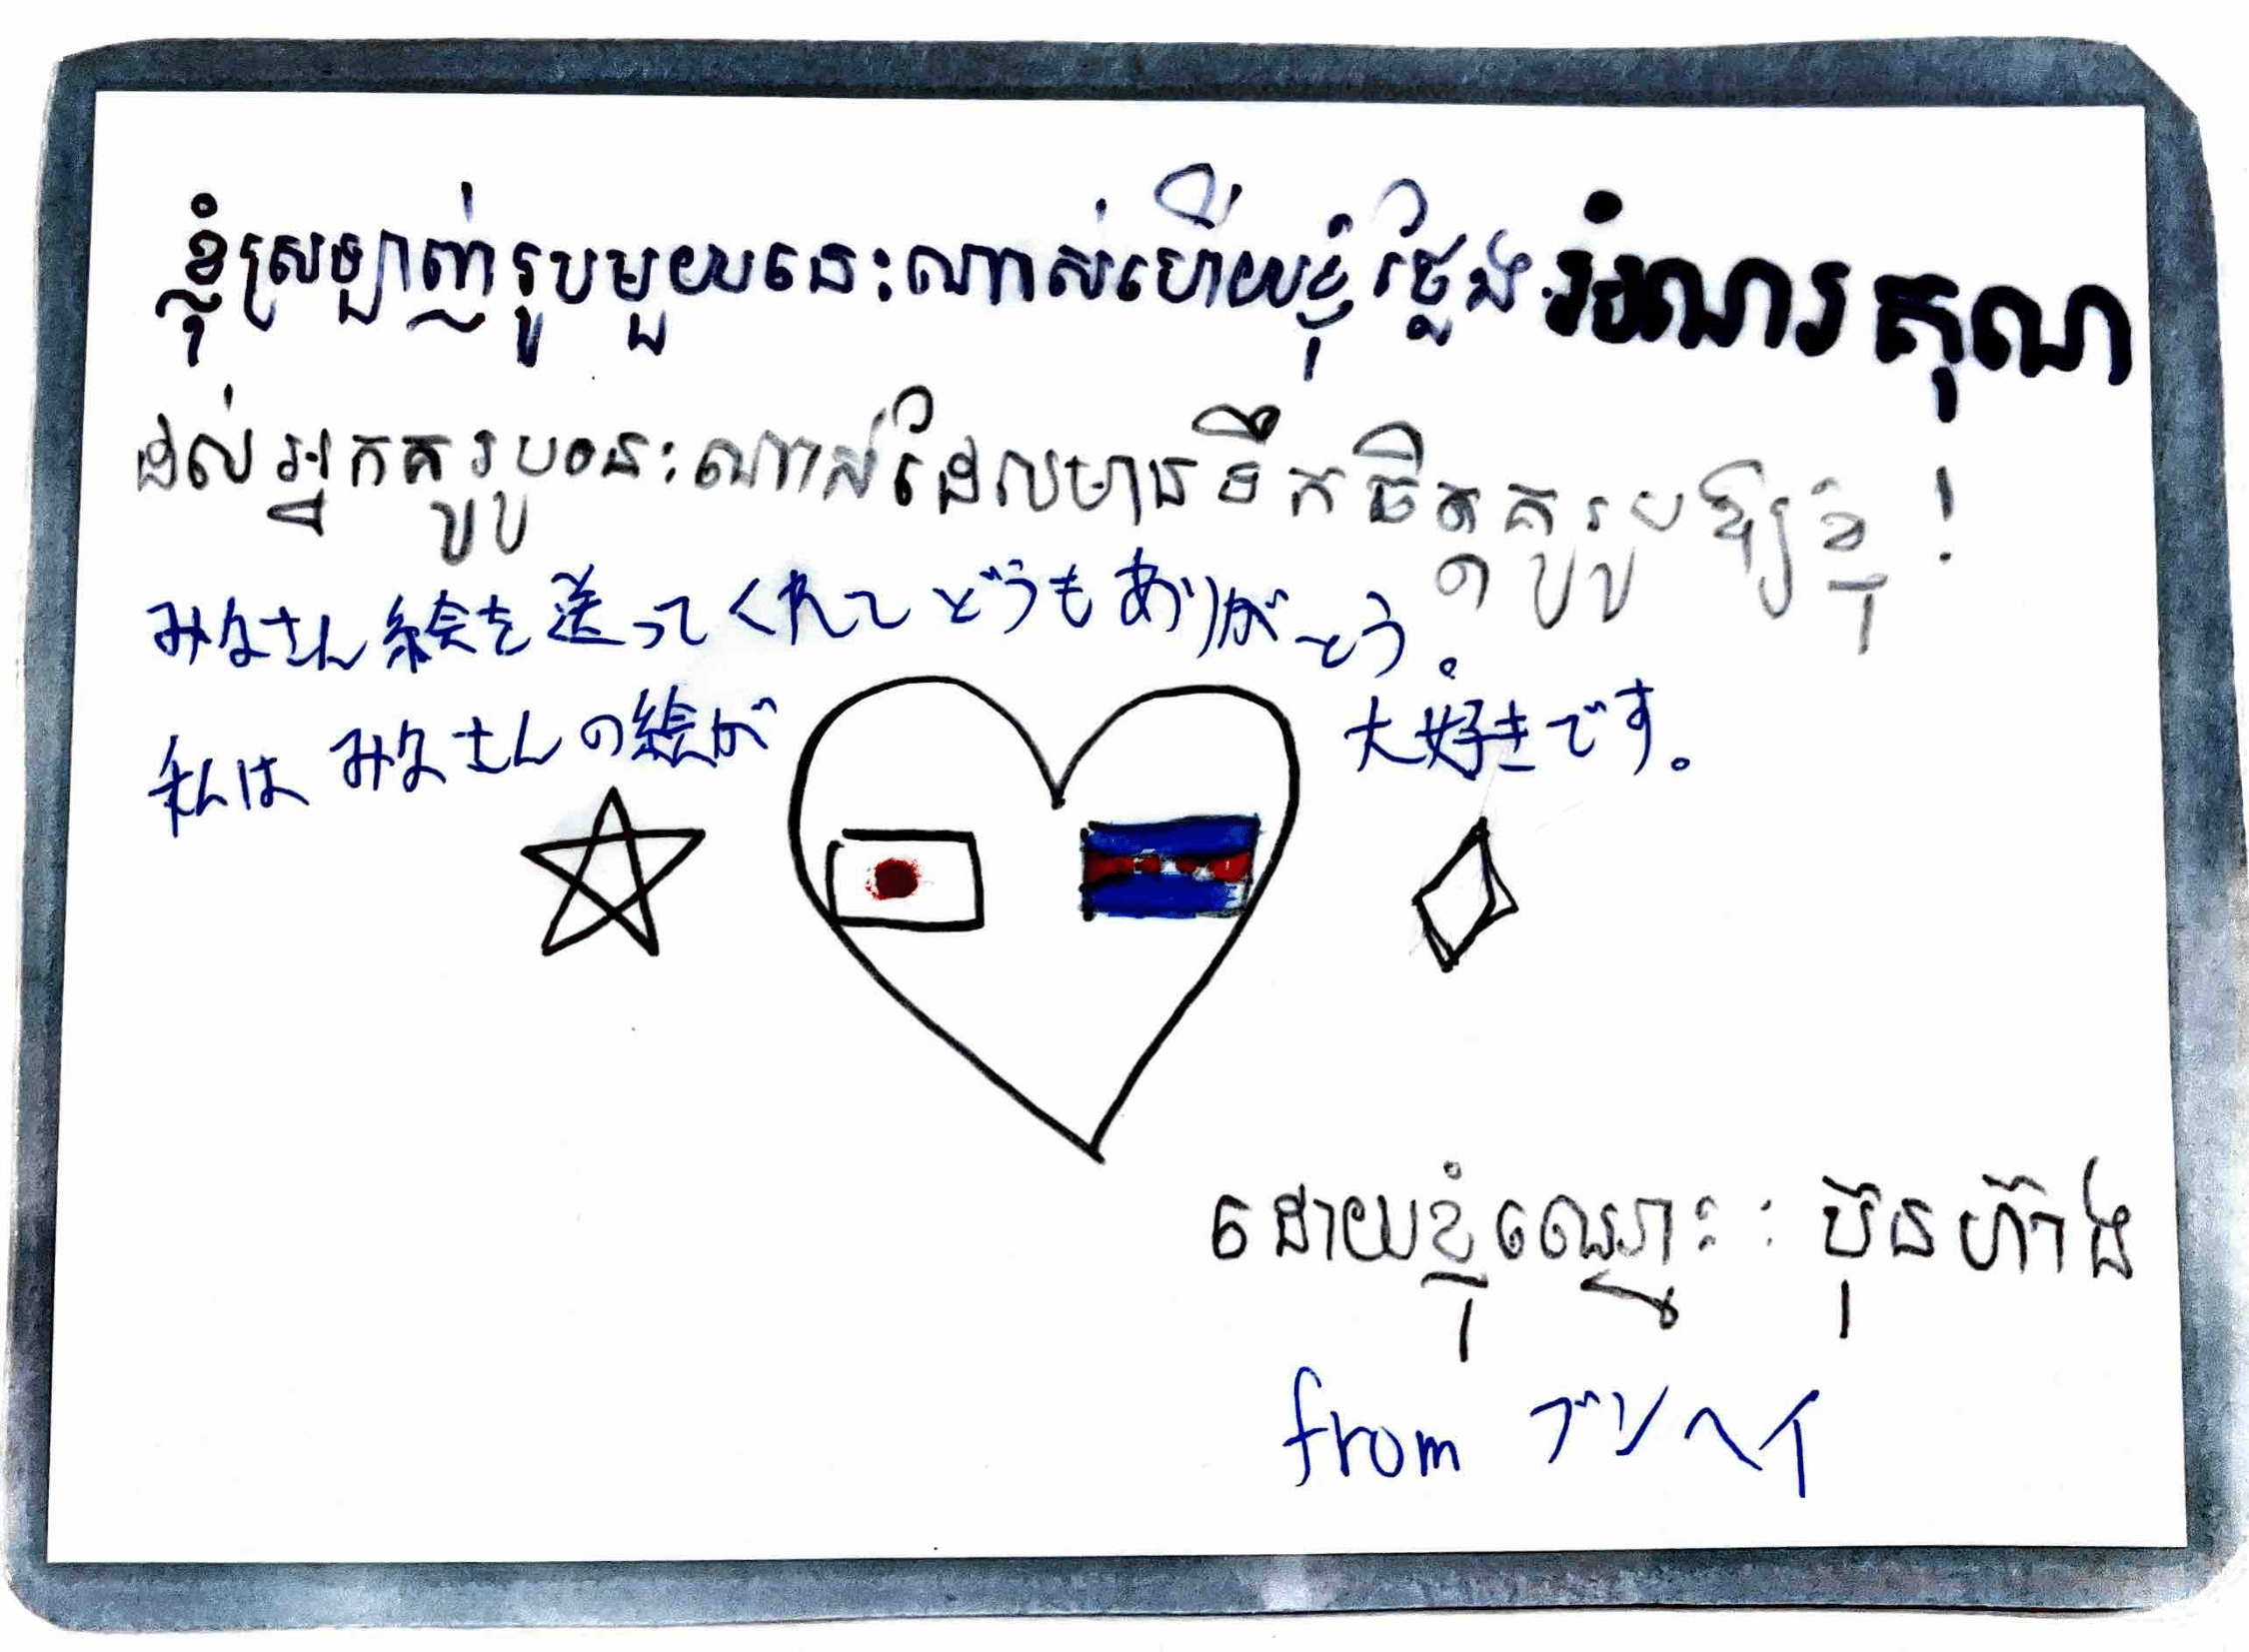 ខ្ញុំស្រឡាញ់រូបមួយនេះណាស់ហើយខ្ញុំថ្លែងអំណរគុណ
ដល់អ្នកគូររូបនេះណាស់ដែលមានទឹកចិត្តគូររូបឱ្យខ្ញុំ!
みなさん絵を送ってくれてどうもありがとう。
私はみなさんの絵が大好きです。
ដោយខ្ញុំឈ្មោះ: ប៊ុនហ៊ាង
from ブンヘイ